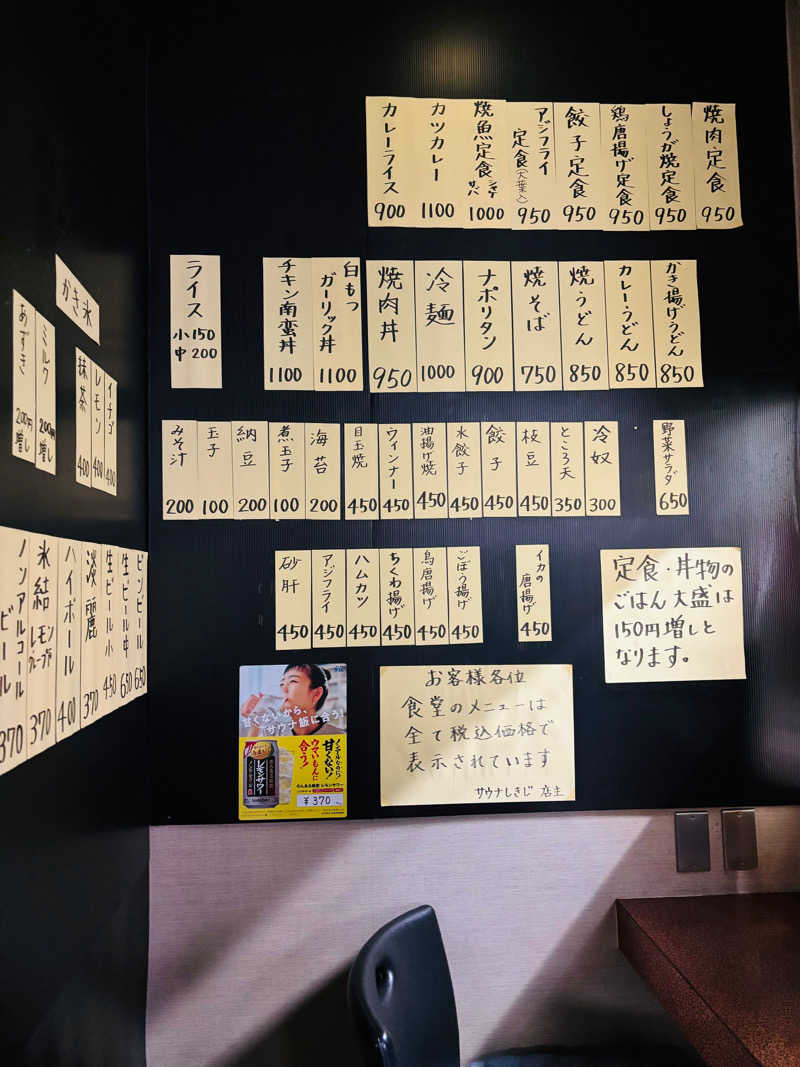 焼肉定食 950
しょうが焼定食 950
鶏唐揚げ定食 950
餃子定食 950
アジフライ定食(大葉入) 950
焼魚定食 シャケ サバ 1000
カツカレー 1100
カレーライス 900
かき揚げうどん 850
カレーうどん 850
焼うどん 850
焼そば 750
ナポリタン 900
冷麺 1000
焼肉丼 950
白もつガーリック丼 1100
チキン南蛮丼 1100
ライス
小 150
中 200
野菜サラダ 650
冷奴 300
ところ天 350
枝豆 450
餃子 450
水餃子 450
油揚げ焼 450
ウィンナー 450
目玉焼 450
海苔 200
煮玉子 100
納豆 200
玉子 100
みそ汁 200
イカの唐揚げ 450
ごぼう揚げ 450
鳥唐揚げ 450
ちくわ揚げ 450
ハムカツ 450
アジフライ 450
砂肝 450
定食・丼物の
ごはん大盛は
150円増しと
なります。
お客様各位
食堂のメニューは
全て税込価格で
表示されています
サウナしきじ 店主
甘くないから、
サウナ飯に合う!
ノンアルなのに!
甘くない!
ウマいもんに
合う!
レモンサワー
のんある晩酌 レモンサワー
¥370
かき氷
イチゴ 400
レモン 400
抹茶 400
ミルク 200円増し
あずき 200円増し
ビンビール 650
生ビール中 650
生ビール小 450
淡麗 370
ハイボール 400
氷結 レモン グレープフルーツ 370
ノンアルコールビール 370